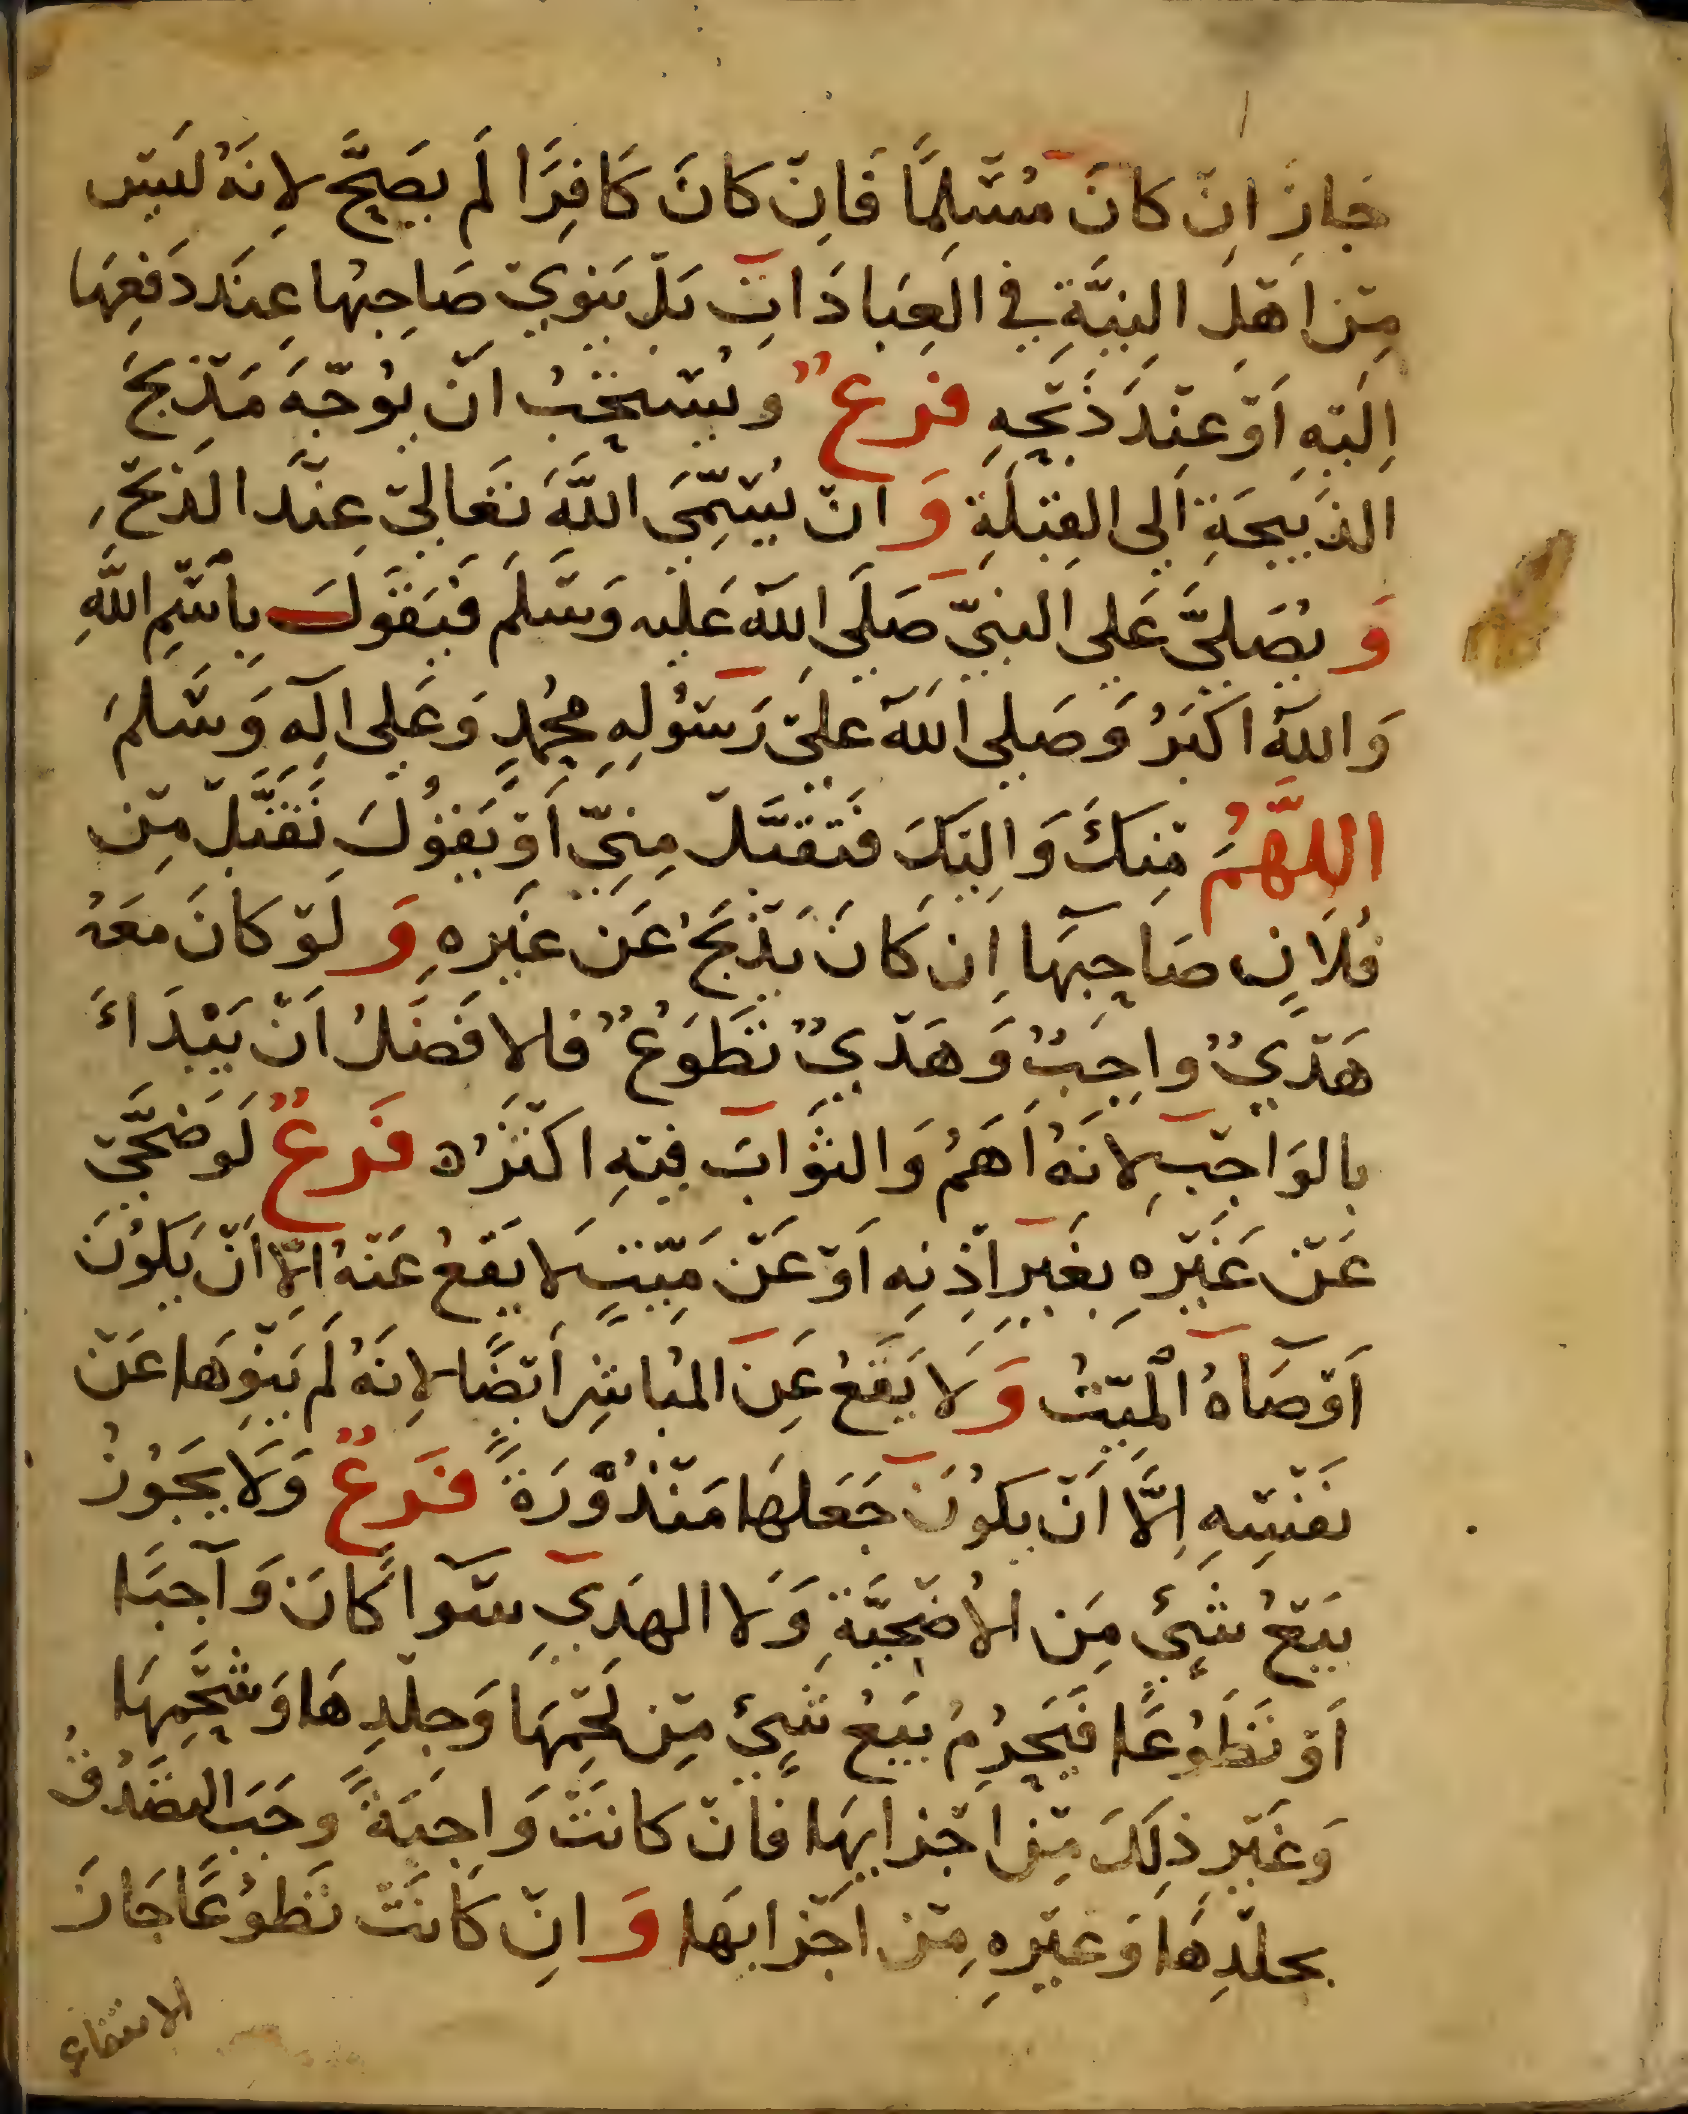 جَازَ اِنْ كَانَ مُسْلِمًا فَاِنْ كَانَ كَافِرًا لَم يَصِحَّ لِانَهُ لَيْسَ
مِنْ اَهْلِ النِيَّةِ في العِبَادَاتِ بَلْ يَنْوِيْ صَاحِبُها عِنَد دَفْعِهَا
اِلَيْهِ اَوْ عِنْدَ ذَبْحِهِ فرع ٌ ويُسْتَحَبُ اَنْ يُوَجّهَ مَذْبَحَ
الذَبِيحَةِ اَلى القِبْلَةِ وَ اَنْ يُسَمِّيَ اللَّهَ تَعَالىْ عِنْدَ الذَبْحِ
وَ يُصَليَّ عَلى النبيّ صَلَى اللهَ عَليه وَسَلَم فَيَقَوُلَ بِاسْمِ اللَّهِ
وَاللهُ اكْبَرُ وَصَلى اللهَ عليْ رَسُوْلِهِ محُمدٍ وَعَلى الِهِ وَسَلمَ
اللَّهُمَ مِنكَ وَاِليَكَ فَتَقَبَّلْ مِنِيّ اَوْ يَقوُلَ تَقَبَّلْ مِنْ
فُلَانٍ صَاحِبِهَا اِن كَانَ يَذْبَحُ عَن غيَرِهِ وَ لَوْ كَانَ مَعَهُ
هَدْيٌ واجِبٌ وَهَدْيٌ تطَوَعٌ فالافَضَلُ اَنْ يَبْدَاءَ
بالوَاجِبْ لِانَهُ اَهَمُ وَالثوَابَ فيْهِ اكْثَرُه فَرعٌ لَو ضَحَّىْ
عَنْ غَيْرِهِ بِغَيرِ اِذْنِه اَوْ عَنْ مَيّتٍ لَا يقَعُ عَنْهُ اِلّا اَنْ يَكوُنَ
اَوْصَاهُ الْمَيّتُ وَ لَا يَقَعُ عَنِ المُبَاشِرِ اَيْضًا لِانَهُ لَم يَنْوِهَا عَنْ
نَفْسِهِ اِلَّا اَنْ يكَوُنَ جَعَلهَا مَنْذُوْرَةً فَرعٌ وَلَا يجَوُزُ
بيَعُ شَيْئٍ مِنَ الاُضْحِيَّةِ وَلَا الهَدِيِ سَوآ كَانَ وَاجِبًا
اَوْ تَطَوُعًا فَيَحْرُمُ بيَعُ شَيْئٍ مِنْ لَحْمِهَا وَجِلْدِهَا وَشَحْمِهَا
وَغَيْرِ ذلِكَ مِنْ اَجْزايِهَا فَاِنْ كانَتْ وَاجِبَةً وجَبَ التصَدُقُ
بجلْدِهَا وَغَيْرِهِ مِنْ اَجْزايهَا وَ اِنْ كَانَتْ تَطوُعًا جَازَ
الانتفاع